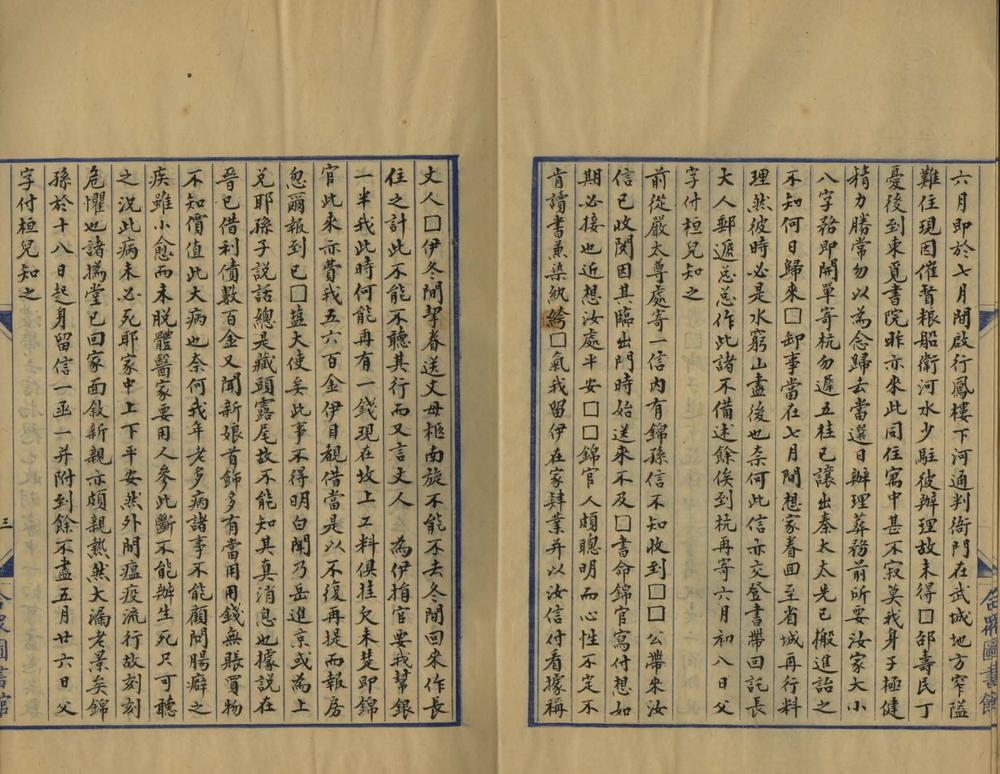 六月即於七月間啟行鳳樓下河通判衙門在武城地方窄隘
難住現因催督粮船衛河水少駐彼辦理故未得□邵壽民丁
憂後到東覓書院昨亦來此同住寓中甚不寂莫我身子極健
精力勝常勿以為念歸去當選日辦理葬務前所要汝家大小
八字務即開單寄杭勿遲五桂已讓出秦太太先已搬進詒之
不知何日歸來□卸事當在七月間想家眷回至省城再行料
理然彼時必是水窮山盡後也柰何此信亦交登書帶回託長
大人郵遞怱怱作此諸不備述餘俟到杭再寄六月初八日父
字付桓兒知之
前從嚴太尊處寄一信內有錦孫信不知收到□□公帶來汝
信已收閱因其臨出門時始送來不及□書命錦官寫付想如
期必接也近想汝處平安□□錦官人頗聰明而心性不定不
肯讀書兼染紈絝□氣我留伊在家肄業并以汝信付看據稱
丈人□伊冬間挈眷送丈母柩南旋不能不去冬間回來作長
住之計此不能不聽其行而又言丈人 為伊捐官要我幫銀
一半我此時何能再有一錢現在坟上工料俱挂欠未楚即錦
官此來亦費我五六百金伊目覩借當是以不復再提而報房
忽爾報到已□鹽大使矣此事不得明白聞乃岳進京或為上
兌耶孫子說話總是藏頭露尾故不能知其真消息也據說在
晉已借利債數百金又聞新娘首飾多有當用用錢無賬買物
不知價值此大病也奈何我年老多病諸事不能顧問腸癖之
疾雖小愈而未脫體醫家要用人參此斷不能辦生死只可聽
之況此病未必死耶家中上下平安然外間瘟疫流行故刻刻
危懼也諸撝堂已回家面敘新親亦頗親熱然大漏老景矣錦
孫於十八日起身留信一函一并附到餘不盡五月廿六日父
字付桓兒知之
三
合眾圖書館
合眾圖書館